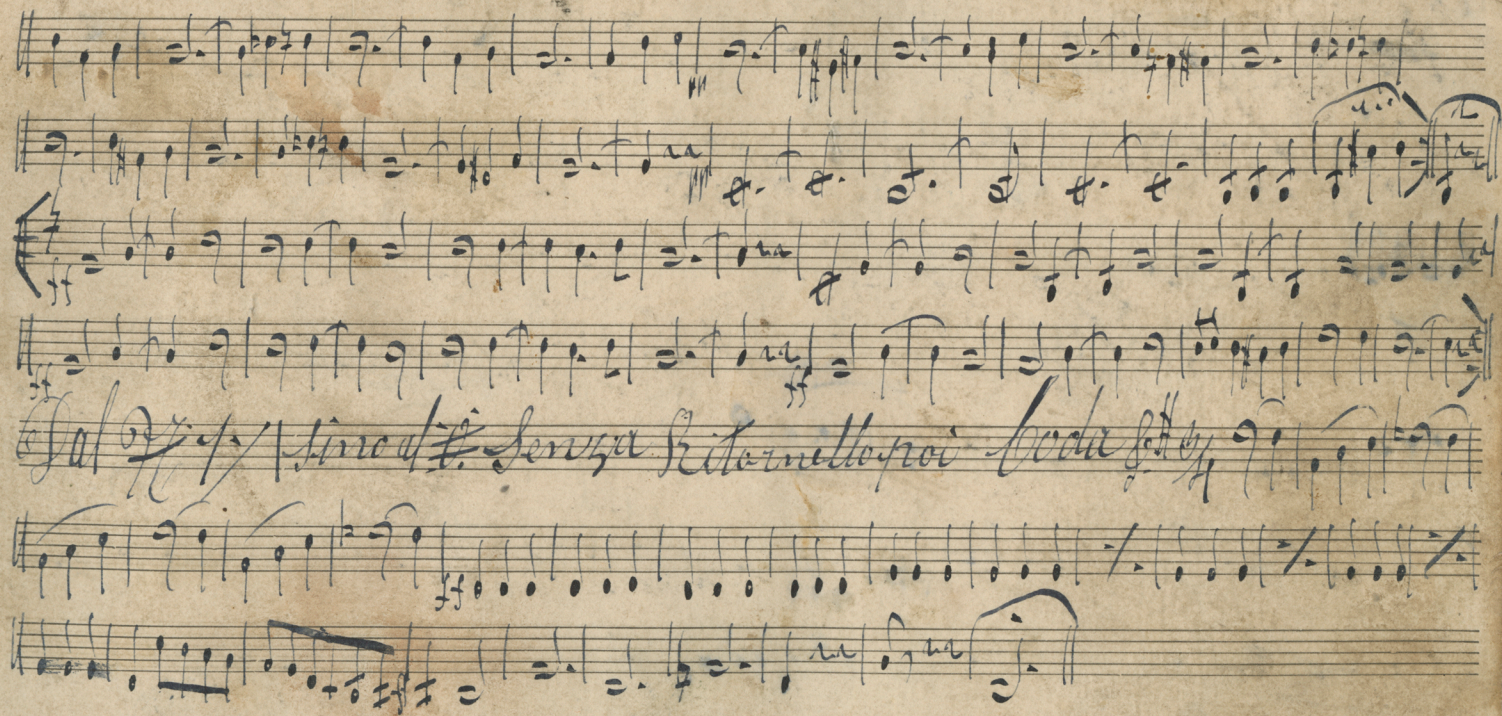 ff
ff
ff
Dal 𝄋 sino al 𝄌 Senza Ritornello poi Coda
ff